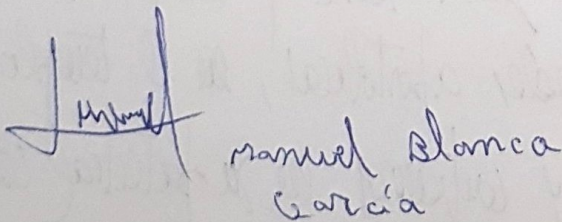 Manuel Blanca
García